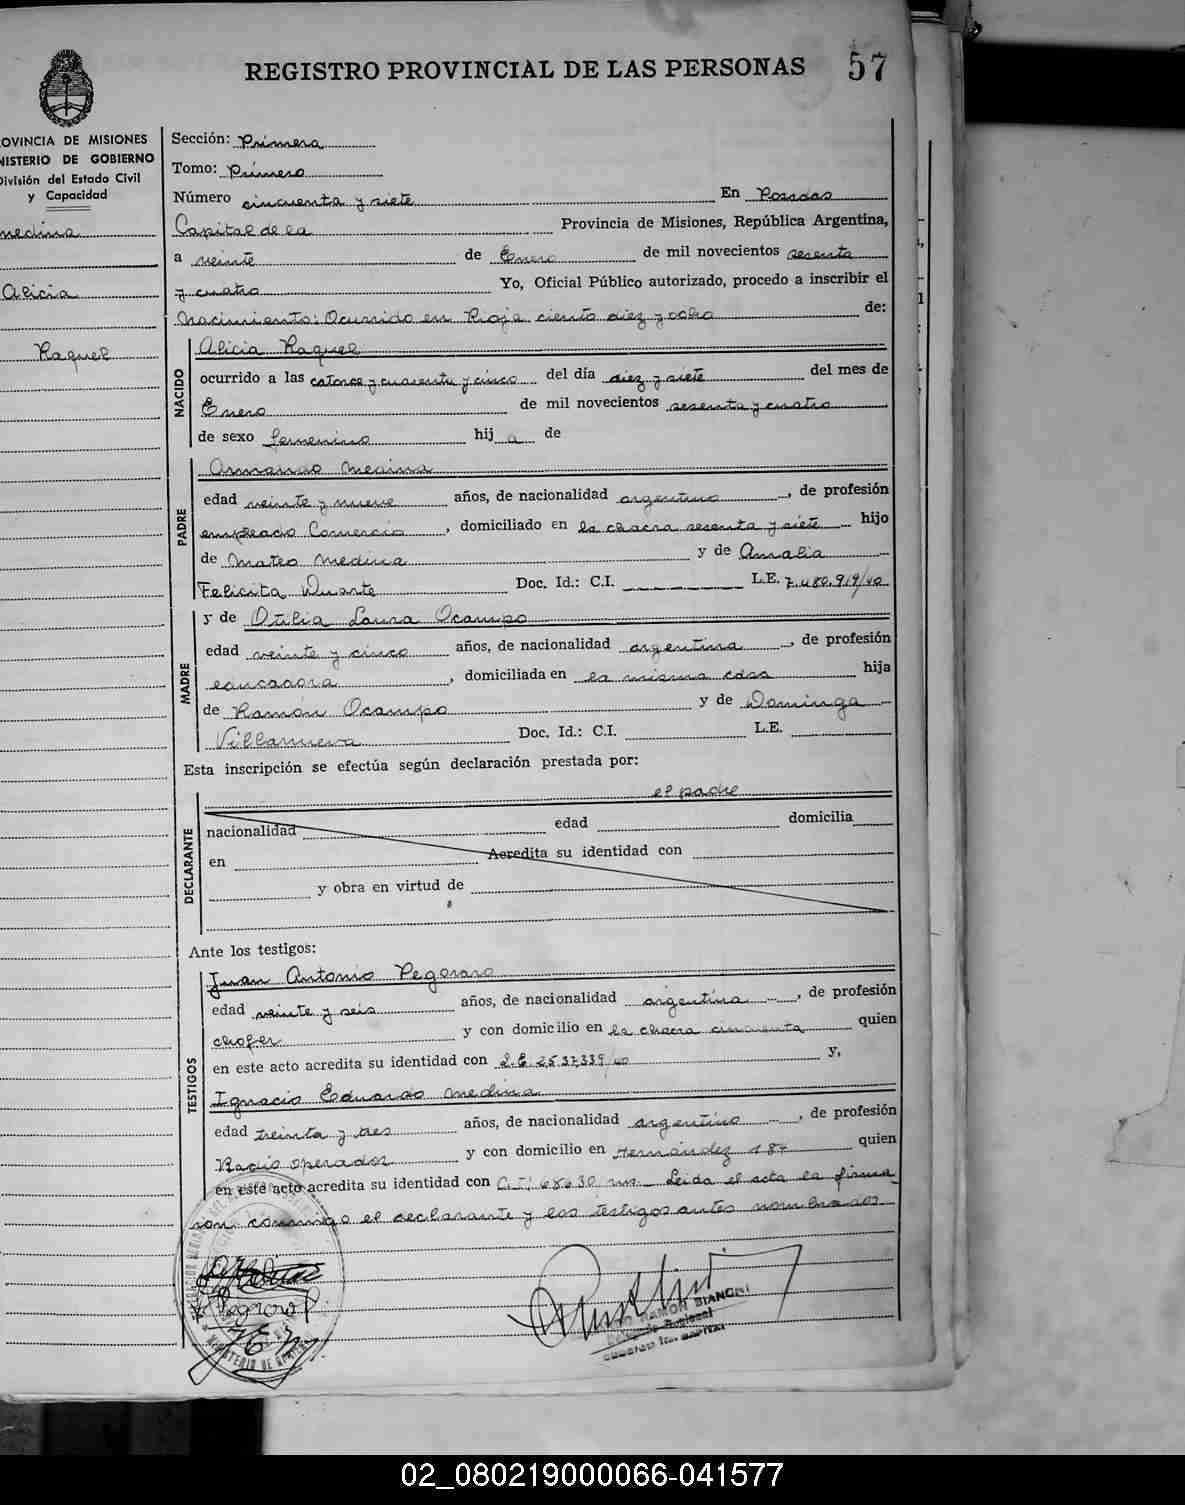 REGISTRO PROVINCIAL DE LAS PERSONAS 57
OVINCIA DE MISIONES
NISTERIO DE GOBIERNO
División del Estado Civil
y Capacidad
medina
Alicia
Raquel
Sección: Primera
Tomo: Primero
Número cincuenta y siete En Posadas
Capital de la Provincia de Misiones, República Argentina,
a veinte de Enero de mil novecientos sesenta
y cuatro Yo, Oficial Público autorizado, procedo a inscribir el
Nacimiento: Ocurrido en Rioja ciento diez y ocho de:
NACIDO
Alicia Raquel
ocurrido a las catorce y cuarenta y cinco del día diez y siete del mes de
Enero de mil novecientos sesenta y cuatro
de sexo femenino hij a de
PADRE
Armando Medina
edad veinte y nueve años, de nacionalidad argentino, de profesión
empleado Comercio, domiciliado en la chacra sesenta y siete hijo
de Mateo Medina y de Amalia
Felicita Duarte Doc. Id.: C.I. L.E. 7.480.919/40
MADRE
y de Otilia Laura Ocampo
edad veinte y cinco años, de nacionalidad argentina, de profesión
educadora, domiciliada en la misma casa hija
de Ramón Ocampo y de Dominga
Villanueva Doc. Id.: C.I. L.E.
Esta inscripción se efectúa según declaración prestada por:
el padre
DECLARANTE
nacionalidad edad domicilia
en Acredita su identidad con
y obra en virtud de
Ante los testigos:
TESTIGOS
Juan Antonio Pegoraro
edad veinte y seis años, de nacionalidad argentina, de profesión
chofer y con domicilio en la chacra cincuenta quien
en este acto acredita su identidad con L.E. 2537339/40 y,
Ignacio Eduardo Medina
edad treinta y tres años, de nacionalidad argentino, de profesión
Radio operador y con domicilio en Hernández 187 quien
en este acto acredita su identidad con C.I. 68630 mn. Leida el acta la firma
ron conmigo el declarante y los testigos antes nombrados
RAMON BIANCHI
02_080219000066-041577